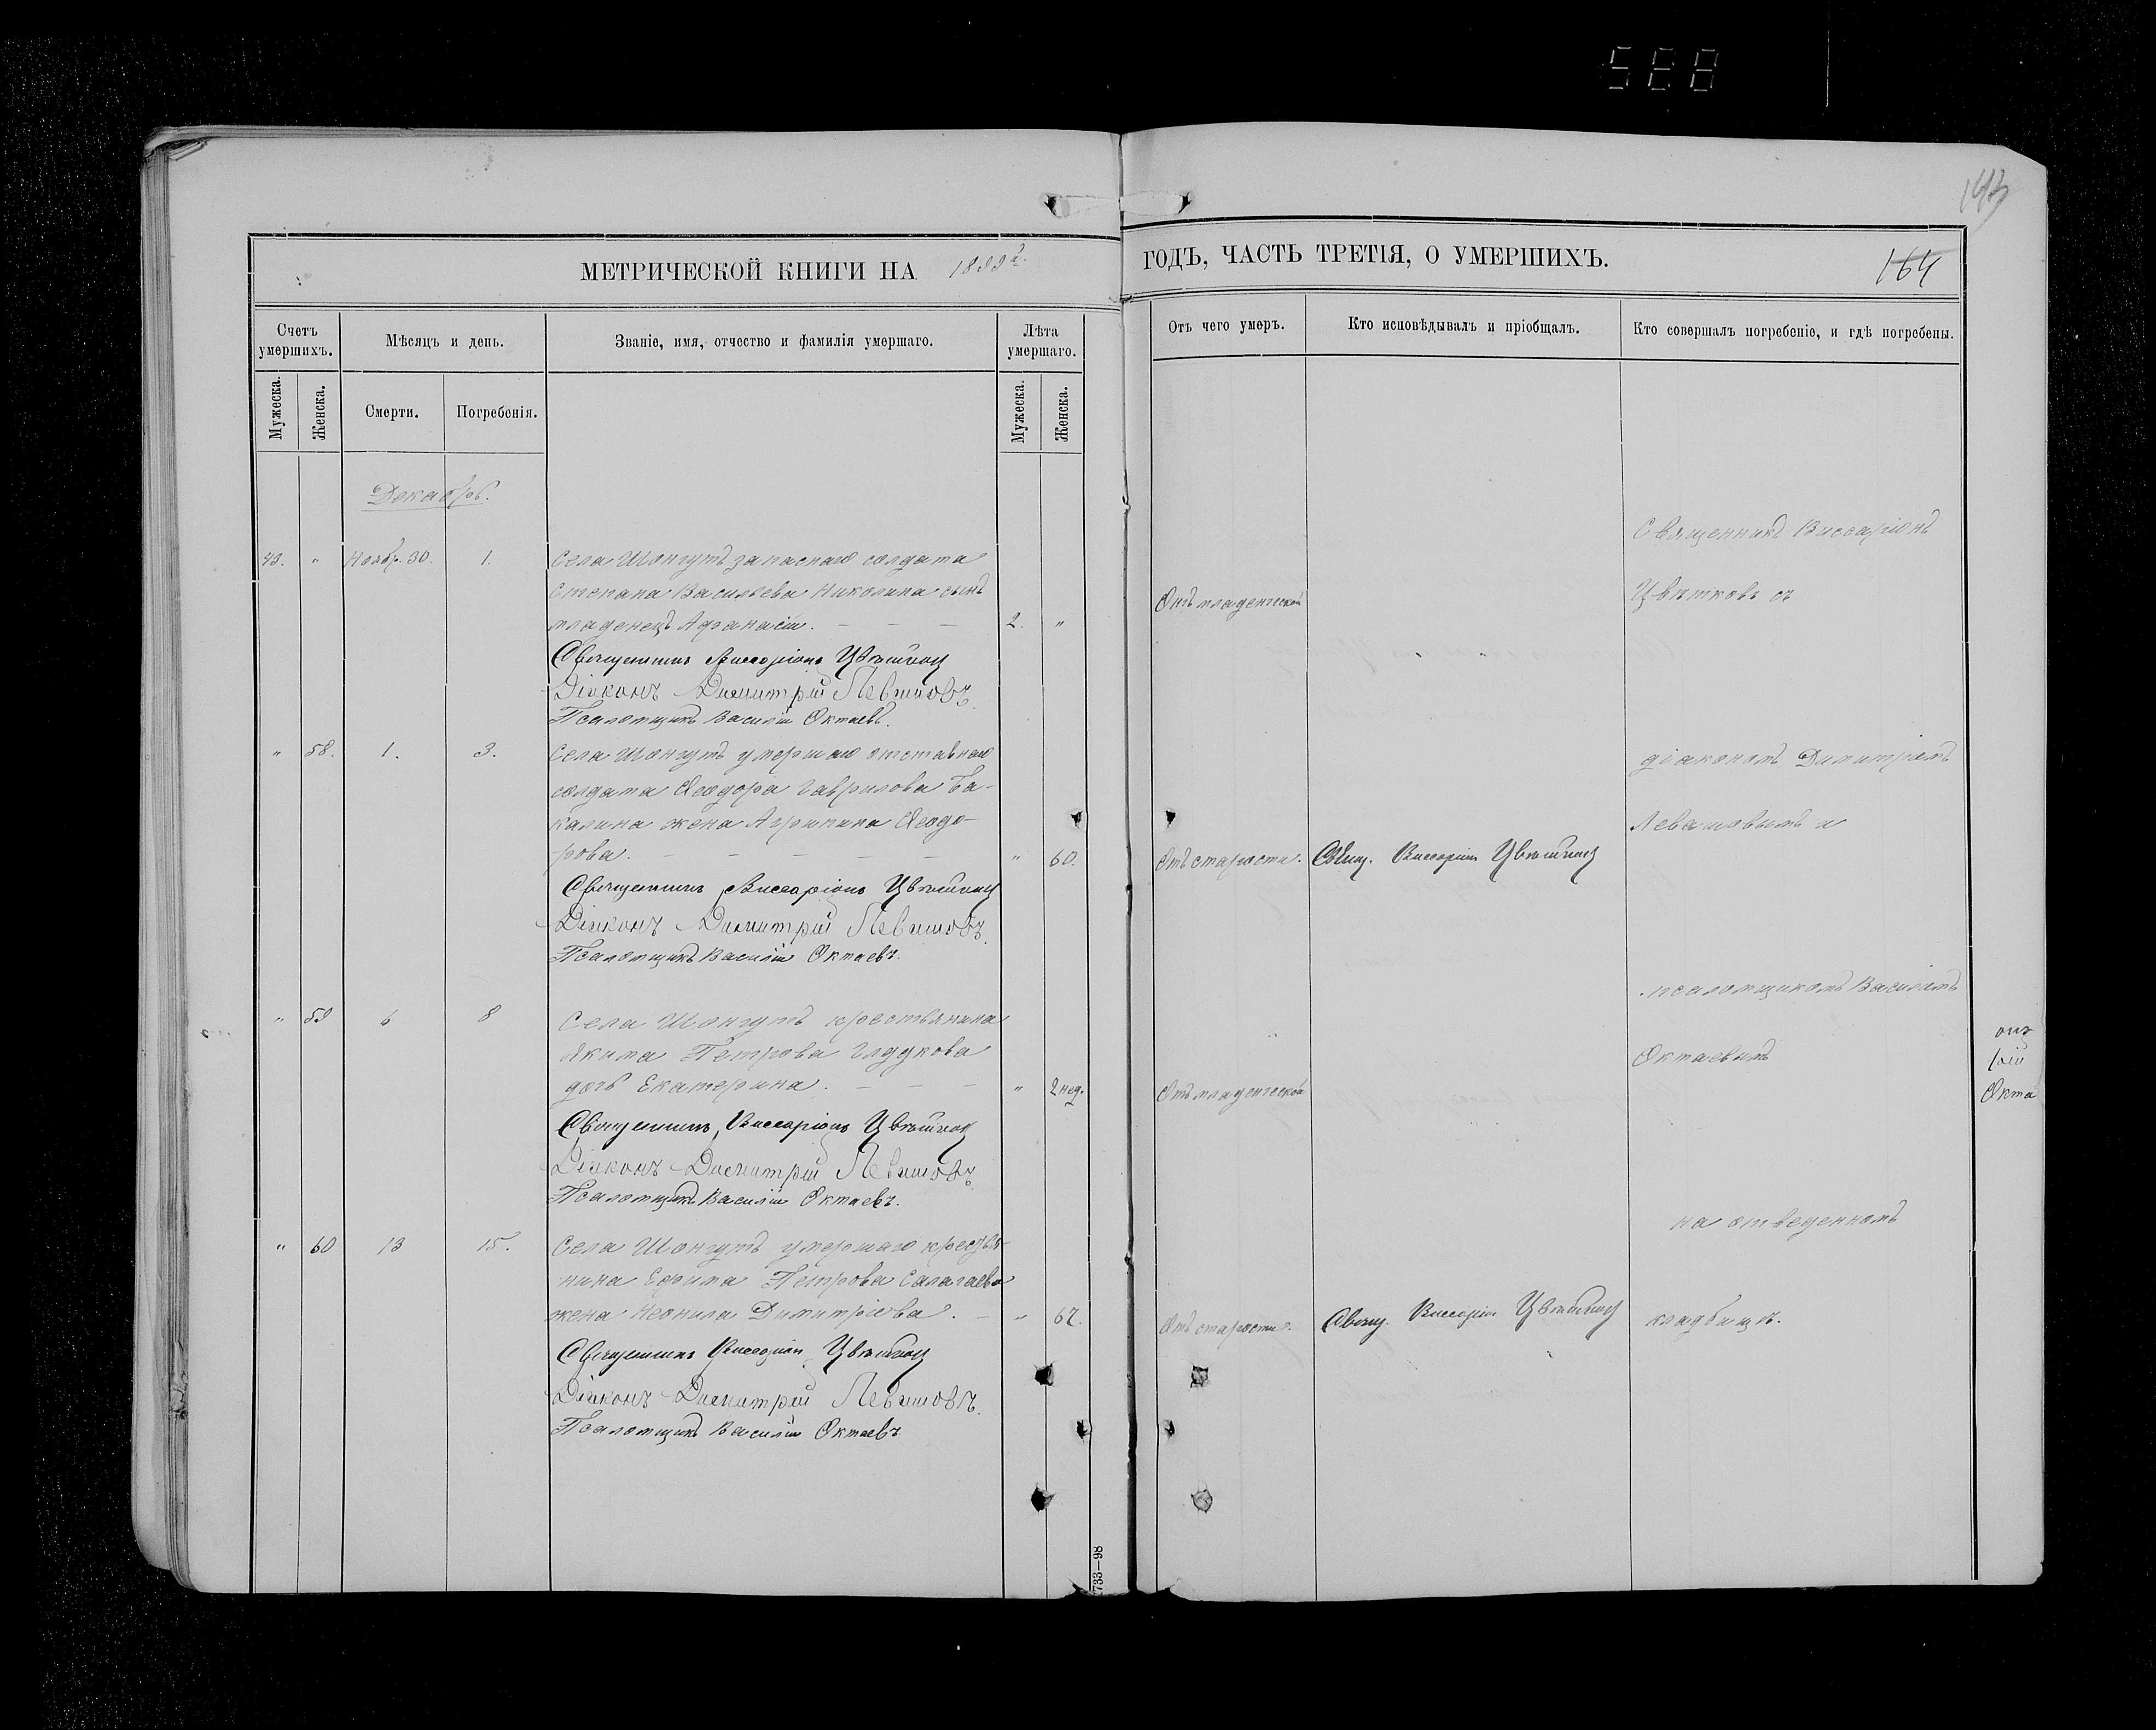 588
143
МЕТРИЧЕСКОЙ КНИГИ НА 1899 г.
ГОДЪ, ЧАСТЬ ТРЕТІЯ, О УМЕРШИХЪ.
164
Счетъ умершихъ.
Мѣсяцъ и день.
Званіе, имя, отчество и фамилія умершаго.
Лѣта умершаго.
Отъ чего умеръ.
Кто исповѣдывалъ и пріобщалъ.
Кто совершалъ погребеніе, и гдѣ погребены.
Мужеска.
Женска.
Смерти.
Погребенія.
Мужеска.
Женска.
Декабрь.
Священникъ Виссаріонъ
43. " Ноябр. 30. 1. Села Шонгутъ запаснаго солдата
Степана Васильева Николина сынъ
Цвѣтковъ съ
младенецъ Афанасій. — — — 2. " Отъ младенческой
Священникъ Виссаріонъ Цвѣтковъ
Діаконъ Димитрій Левашовъ.
Псаломщикъ Василій Октаевъ.
" 58. 1. 3. Села Шонгутъ умершаго отставнаго
діакономъ Димитріемъ
солдата Ѳеодора Гаврилова Ба-
калина жена Агрипина Ѳеодо-
Левашовымъ и
рова. — — — — — " 60. Отъ старости. Свящ. Виссаріонъ Цвѣтковъ
Священникъ Виссаріонъ Цвѣтковъ
Діаконъ Димитрій Левашовъ.
Псаломщикъ Василій Октаевъ.
псаломщикомъ Василіемъ
" 59 6 8 Села Шонгутъ крестьянина
Якима Петрова Гладкова
Октаевымъ
дочь Екатерина. — — — " 2 нед. Отъ младенческой
рій
Окта
Священникъ Виссаріонъ Цвѣтковъ
Діаконъ Димитрій Левашовъ.
Псаломщикъ Василій Октаевъ.
на отведенномъ
" 60 13 15. Села Шонгутъ умершаго кресть-
нина Ефима Петрова Салагаева
жена Неонила Димитріева. — " 67. Отъ старости. Свящ. Виссаріонъ Цвѣтковъ
кладбищѣ.
Священникъ Виссаріонъ Цвѣтковъ
Діаконъ Димитрій Левашовъ.
Псаломщикъ Василій Октаевъ
733—98